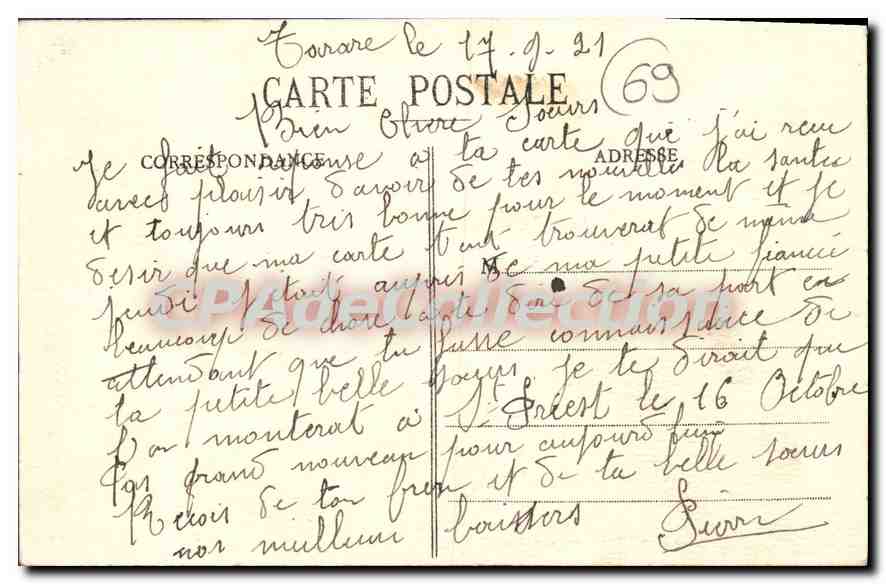 Tarare le 17-9-21
69
CARTE POSTALE
Bien Chère Soeurs
CORRESPONDANCE
ADRESSE
Je fait réponse à ta carte que j'ai recu
avec plaisir d'avoir de tes nouvelles la santée
et toujours tris bonne pour le moment et je
desir que ma carte tent trouverat de même
M
jeudi j'était aupris de ma petite fiancée
beaucoup de chose à te dire de sa part en
CPAdeCollection
attendant que tu fasse connaissance de
ta petite belle soeurs je te dirait que
l'on monterat à St Priest le 16 Octobre
Pas grand nouveau pour aujourd'hui
Recois de ton frere et de ta belle soeurs
nos meilleur baissers Pierre